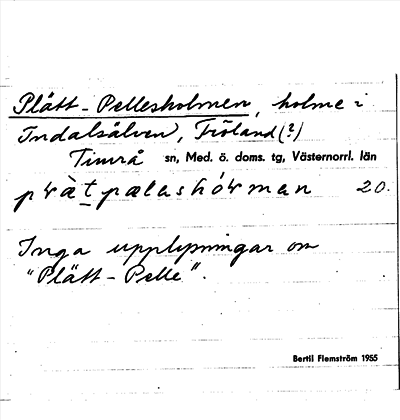 Plätt-Pellesholmen, holme i
Indalsälven, Fröland (?)
Timrå sn, Med. ö. doms. tg, Västernorrl. län
20.
Inga upplysningar om
"Plätt-Pelle".
Bertil Flemström 1955